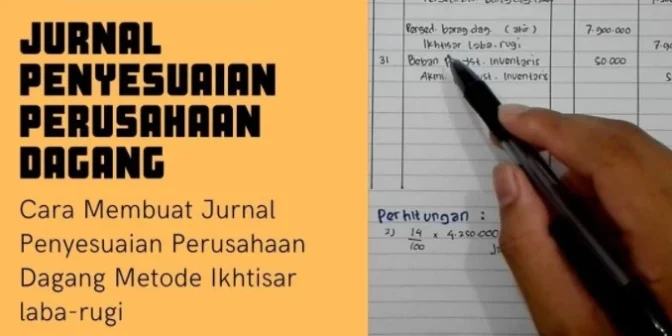 JURNAL
PENYESUAIAN
PERUSAHAAN
DAGANG
Cara Membuat Jurnal
Penyesuaian Perusahaan
Dagang Metode Ikhtisar
laba-rugi
Persed. barang dag. (akhir) 7.900.000
Ikhtisar laba-rugi 7.9
31 Beban st. inventaris 50.000
Akm. ust. inventaris 5
Perhitungan :
2) 14/100 x 4.250.000